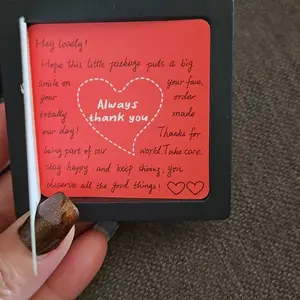 Hey lovely!
Hope this little package puts a big
smile on your face,
your order
totally made
our day! Thanks for
being part of our world. Take care,
stay happy, and keep shining, you
deserve all the good things!
Always
thank you